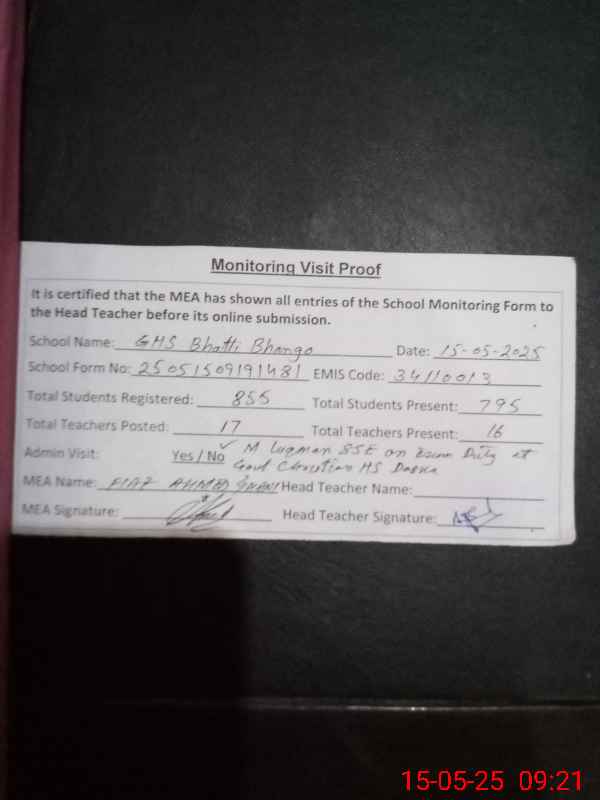 Monitoring Visit Proof
It is certified that the MEA has shown all entries of the School Monitoring Form to
the Head Teacher before its online submission.
School Name: GHS Bhatti Bhango Date: 15-05-2025
School Form No: 25051509191481 EMIS Code: 34110013
Total Students Registered: 855 Total Students Present: 795
Total Teachers Posted: 17 Total Teachers Present: 16
Admin Visit: Yes / No ✓ M Luqman SSE on Exam Duty at
Govt Christian HS Daska
MEA Name: FIAZ AHMED Head Teacher Name:
MEA Signature: Head Teacher Signature:
15-05-25 09:21